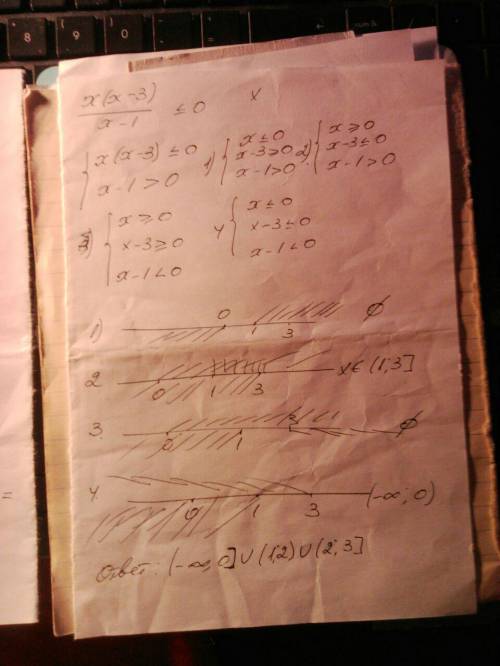 x(x-3)
x-1
≤ 0
x
{ x(x-3) ≤ 0
x-1 > 0
1) { x ≤ 0
x-3 ≥ 0
x-1 > 0
2) { x ≥ 0
x-3 ≤ 0
x-1 > 0
3) { x ≥ 0
x-3 ≥ 0
x-1 < 0
4 { x ≤ 0
x-3 ≤ 0
x-1 < 0
1) 0 1 3 ∅
2 0 1 3 x∈(1;3]
3. 0 1 3 ∅
4. 0 1 3 (-∞; 0)
Ответ: (-∞, 0]∪(1;2)∪(2;3]
8 9 0